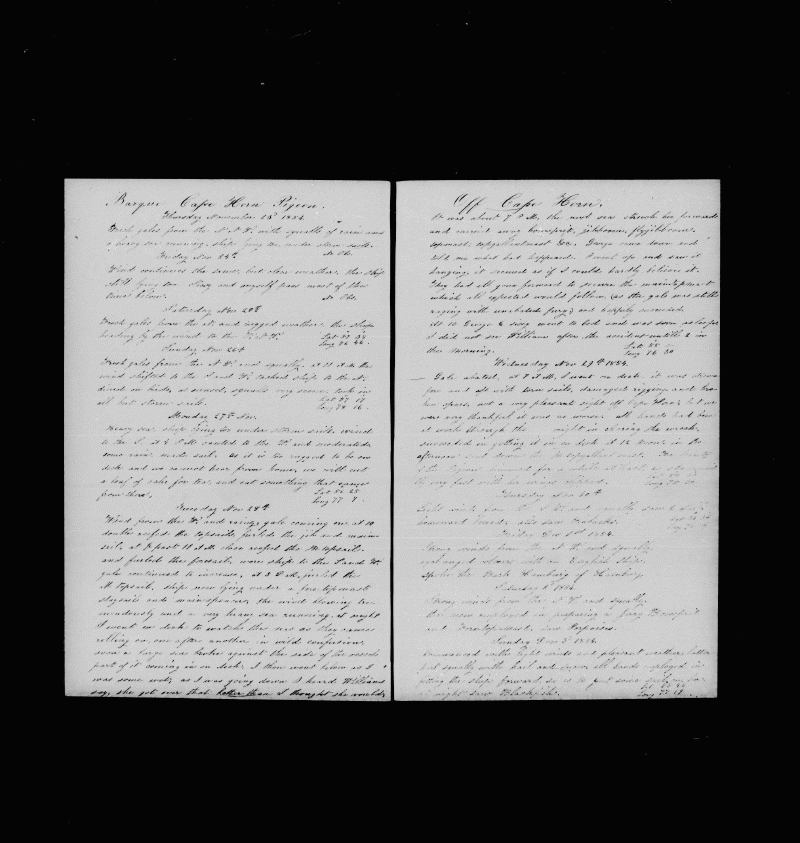 Barque Cape Horn Pigeon.
Thursday November 23d 1854
Fresh gales from the N. N. W. with squalls of rain and
a heavy sea running, ship lying too under storm sails.
Friday Nov 24th No Obs.
Wind continues the same, but clear weather, the ship
still lying too. King and myself pass most of the
time below. No Obs.
Saturday Nov 25th
Fresh gales from the N. and rugged weather the ship
heading by the wind to the
Sunday Nov 26th
Fresh gales from the N W. and squally, at 11 A.M. the
wind shifted to the S and W, tacked ship to the N.
squalls very severe, took in
all but storm sails.
Monday 27th Nov.
Heavy sea, ship lying too under storm sails, wind
to the S. At 2 P.M. canted to the W. and moderated,
some rain, made sail. As it is too rugged to be on
deck and we cannot hear from home, we will cut
a loaf of cake for tea, and eat something that came
from there. Lat 56 25
Long 77 7
Tuesday Nov 28th
Wind from the W. and rainy, gale coming on, at 10
double reefed the topsails, furled the jib and main
sail, at past 11 A.M. close reefed the M topsail
and furled the foresail, wore ship to the S and W.
gale continued to increase, at 3 P.M. furled the
M Topsail, ship now lying under a fore topmast
staysail and main spencer, the wind blowing tre-
mendously and a very heavy sea running. at night
I went on deck to watch the sea as they came
rolling on, one after another in wild confusion,
soon a large sea broke against the side of the vessel
part of it coming in on deck, I then went below as I
was some wet, as I was going down I heard Williams
say, she got over that better than I thought she would,
Off Cape Horn.
It was about 7 P.M. the next sea struck her forwards
and carried away bowsprit, jibboom, flyjibboom,
topmast, topgallantmast &c. George came down and
told me what had happened. I went up and saw it
hanging, it seemed as if I could hardly believe it.
They had all gone forward to secure the main topmast
which all expected would follow, (as the gale was still
raging with unabated fury) and luckily succeeded.
At 10 George & King went to bed and was soon asleep,
I did not see Williams after the accident untill 2 in
the morning. Lat 55
Long 76 30
Wednesday Nov 29th 1854.
Gale abated, at 7 A.M. I went on deck, it was strewn
fore and aft with torn sails, damaged rigging and bro-
ken spars, not a very pleasant sight off Cape Horn, but we
were very thankful it was no worse. all hands had been
at work through the night in clearing the wreck,
succeeded in getting it in on deck at 12 noon, in the
afternoon sent down the M topgallant mast.
of the Pigeon for a while at least
fly very fast with her wings clipped.
Thursday Nov 30th
Light winds from the S. W. and squally, saw a ship
homeward bound, also saw
Friday Dec 1st 1854.
Strong winds from the N. W. and squally,
exchanged signals with an English Ship.
Spoke the Bark Hamburg of Hamburg.
Saturday 2d 1854.
Strong winds from the and squally
the men employed in preparing a jury Bowsprit
and Foretopmast, saw Porpoises.
Sunday Dec 3d 1854.
Commenced with light winds and pleasant weather, latter
part squally with hail and snow, all hands employed in
the ship forward, so as to put some
at night saw Blackfish.